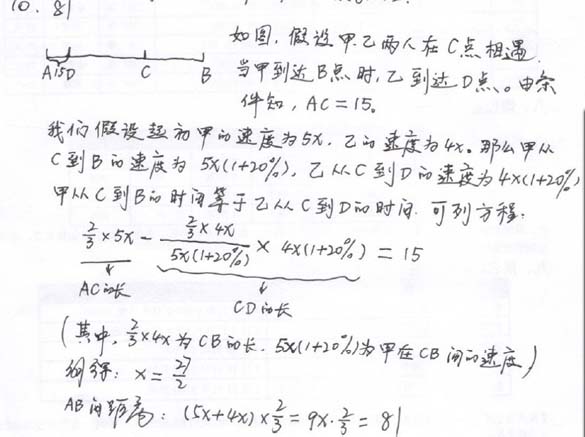 10. 81
A 15 D C B
如图,假设甲.乙两人在C点相遇.
当甲到达B点时,乙到达D点。由条
件知,AC=15。
我们假设起初甲的速度为5x,乙的速度为4x。那么甲从
C到B的速度为 5x(1+20%),乙从C到D的速度为4x(1+20%)
甲从C到B的时间等于乙从C到D的时间.可列方程:
2/3 × 5x - (2/3 × 4x)/(5x(1+20%)) × 4x(1+20%) = 15
AC的长
CD的长
(其中,2/3×4x为CB的长.5x(1+20%)为甲在CB间的速度)
解得:x=27/2
AB间距离:(5x+4x)×2/3=9x·2/3=81